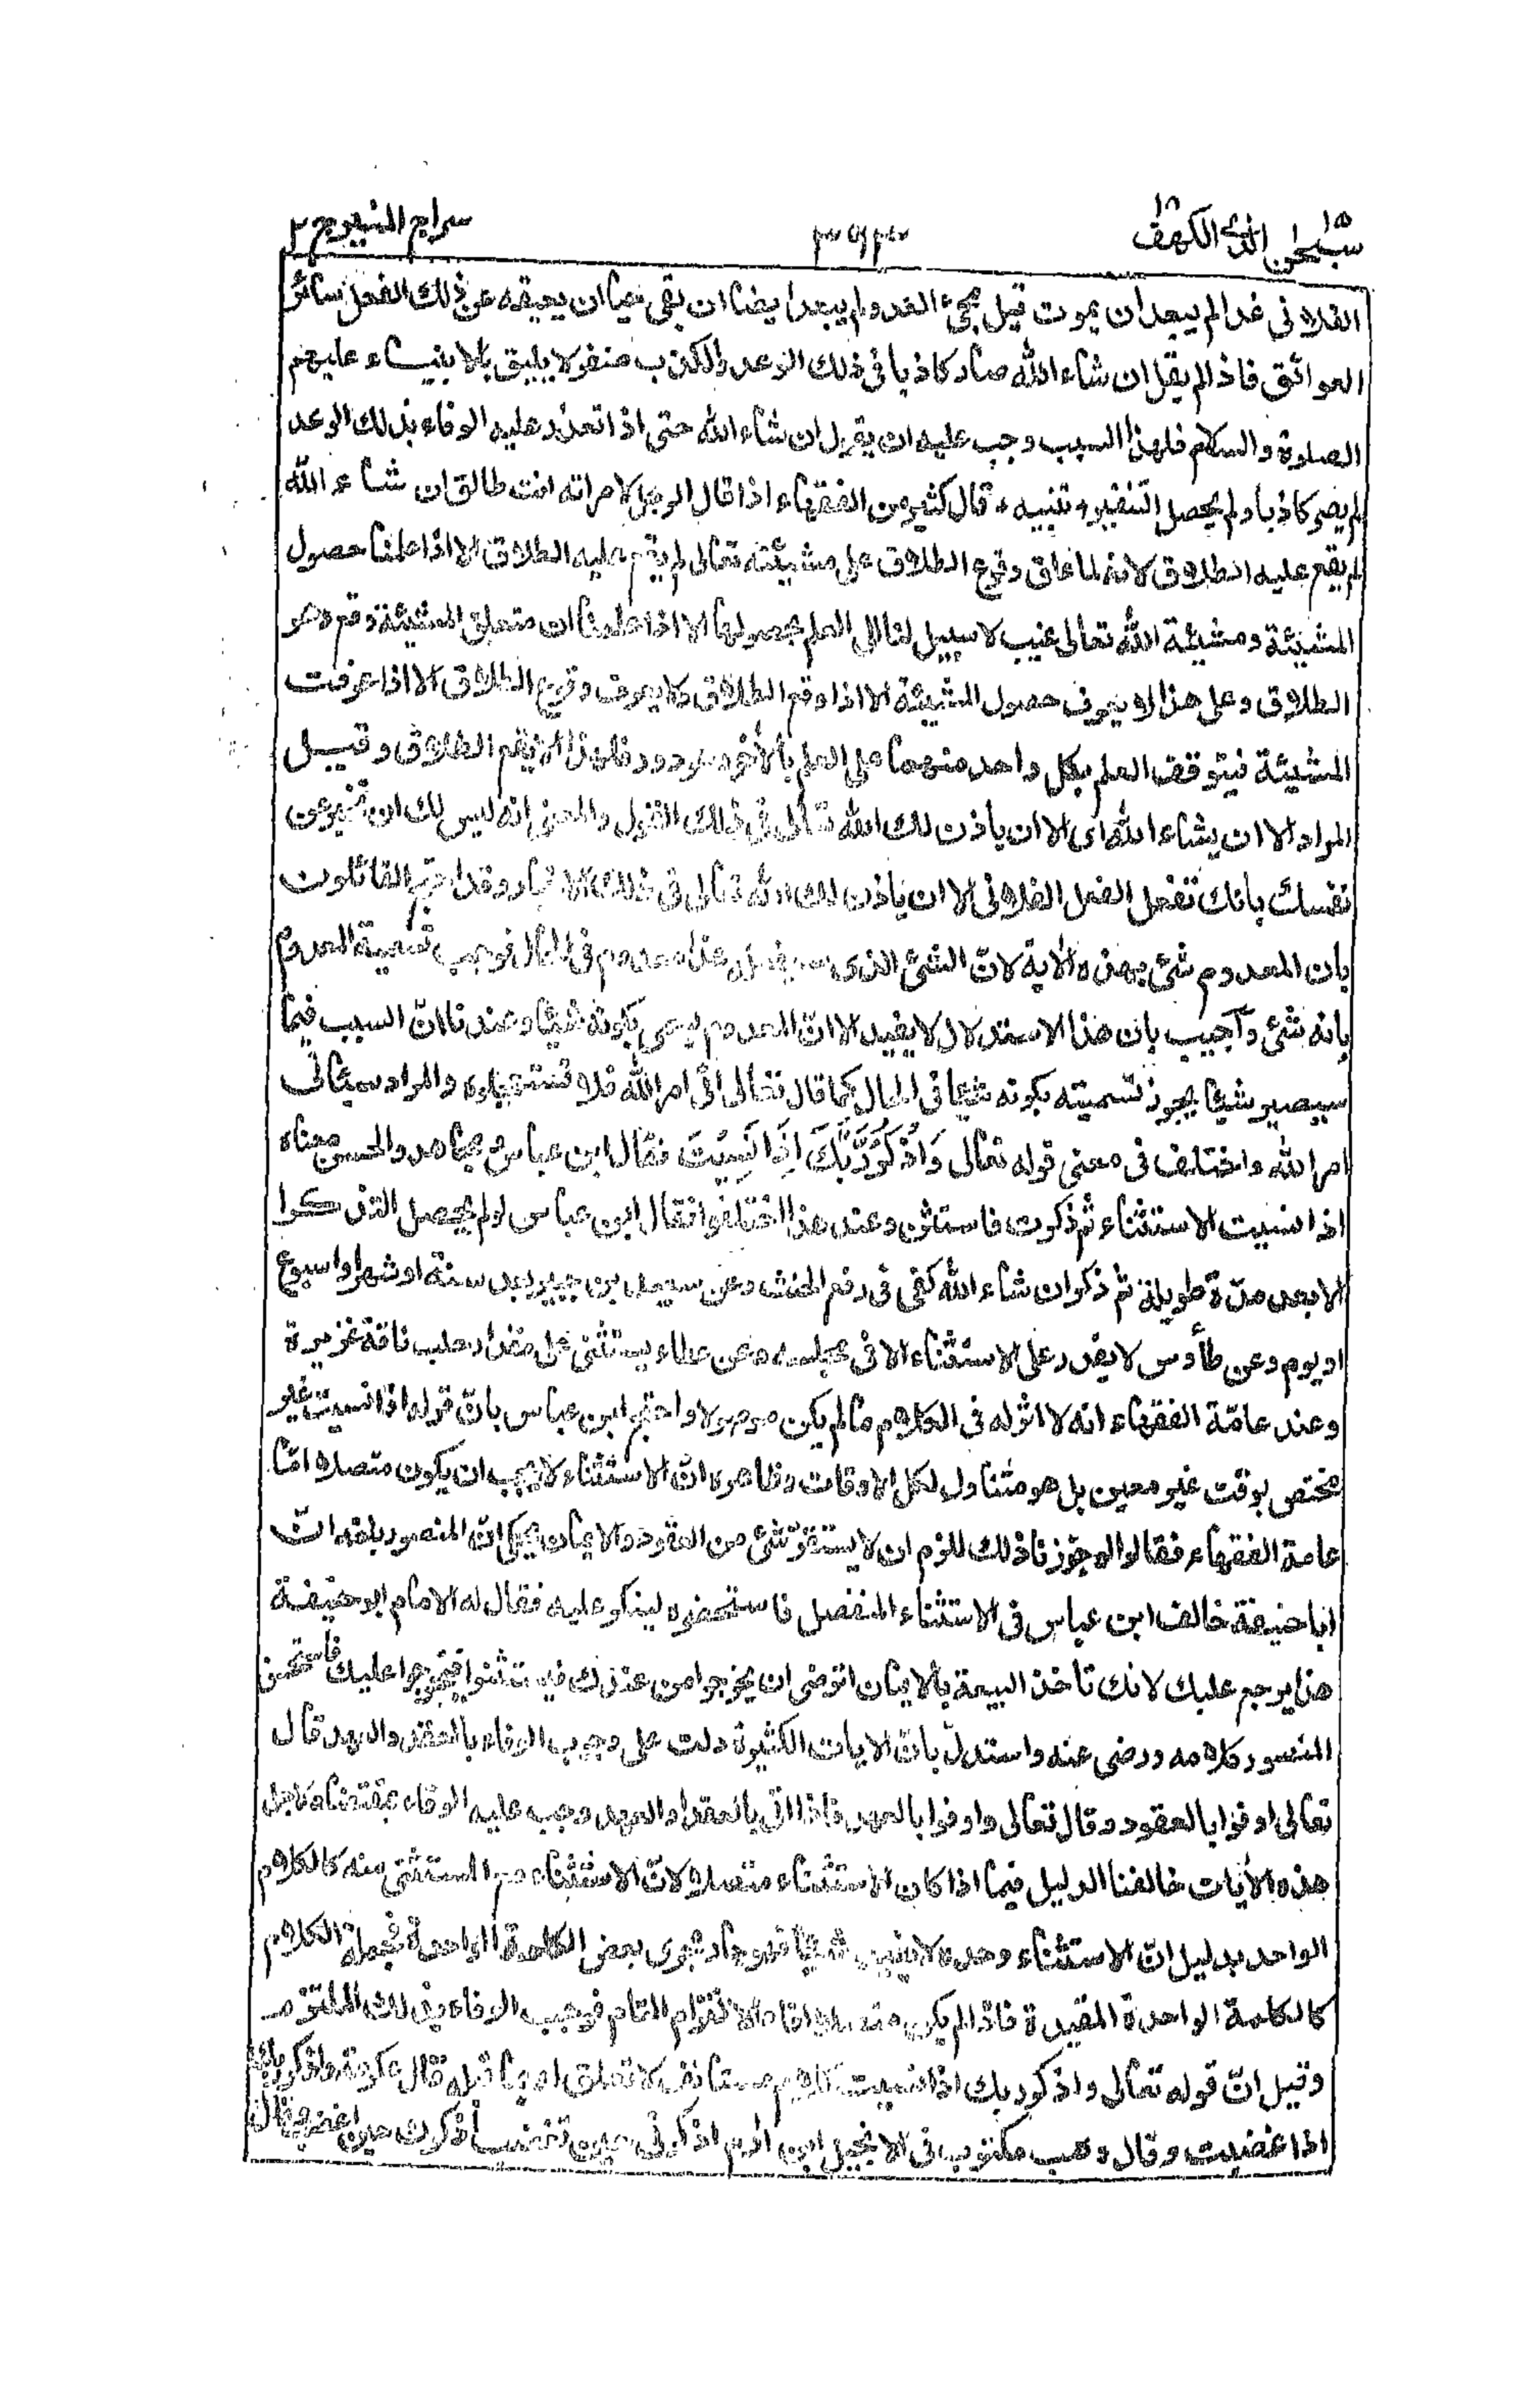 سبحٰن الذی ١٥ الکهف ١٨
سراج المنیر ج ٢
الفلانی غدا لم یبعد ان یموت قبل مجیء الغد ولم یبعد ایضا ان بقی حیا ان یعیقه عن ذلك الفعل سائر
العوائق فاذا لم یقل ان شاء الله صار کاذبا فی ذلك الوعد والکذب منفر لا یلیق بالانبیاء علیهم
الصلوة والسلام فلهذا السبب وجب علیه ان یقول ان شاء الله حتی اذا تعذر علیه الوفاء بذلك الوعد
لم یصر کاذبا ولم یحصل التنفیر، تنبیه، قال کثیر من الفقهاء اذا قال الرجل لامراته انت طالق ان شاء الله
لم یقع علیه الطلاق لانه لما علق وقوع الطلاق علی مشیئته تعالی لم یقع علیه الطلاق الا اذا علمنا حصول
المشیئة ومشیئة الله تعالی غیب لا سبیل لنا الی العلم بحصولها الا اذا علمنا ان متعلق المشیئة وقع وهو
الطلاق وعلی هذا لا یعرف حصول المشیئة الا اذا وقع الطلاق ولا یعرف وقوع الطلاق الا اذا عرفت
المشیئة فیتوقف العلم بکل واحد منهما علی العلم بالآخر وهو دور فلهذا لا یقع الطلاق وقیل
المراد الا ان یشاء الله ای الا ان یأذن لك الله تعالی فی ذلك القول والمعنی انه لیس لك ان تخبر عن
نفسك بانك تفعل الفعل الفلانی الا ان یاذن لك الله تعالی فی ذلك الاخبار وقد احتج القائلون
بان المعدوم شئ بهذه الآیة لانّ الشئ الذی سیفعله غدا معدوم فی الحال فوجب تسمیة المعدوم
بانه شئ وأجیب بان هذا الاستدلال لا یفید الا انّ المعدوم یسمی بکونه شیئا وعندنا انّ السبب فیما
سیصیر شیئا یجوز تسمیته بکونه شیئا فی الحال کما قال تعالی اتٰی امر الله فلا تستعجلوه والمراد سیئاتی
امر الله واختلف فی معنی قوله تعالی وَاذْکُرْ رَّبَّكَ اِذَا نَسِیْتَ فقال ابن عباس ومجاهد والحسن معناه
اذا نسیت الاستثناء ثم ذکرت فاستثن وعند هذا اختلفوا فقال ابن عباس لو لم یحصل التذکر
الا بعد مدّة طویلة ثم ذکر ان شاء الله کفی فی رفع الحنث وعن سعید بن جبیر بعد سنة او شهر او اسبوع
او یوم وعن طأوس لا یقدر علی الاستثناء الا فی مجلسه وعن عطاء یستثنی علی مقدار حلب ناقة غزیرة
وعند عامّة الفقهاء انه لا اثر له فی الکلام ما لم یکن موصولا واحتج ابن عباس بانّ قوله اذا نسیت غیر
مختص بوقت غیر معین بل هو متناول لکل الاوقات وظاهره انّ الاستثناء لا یجب ان یکون متصلا امّا
عامة الفقهاء فقالوا لو جوّزنا ذلك للزم ان لا یستقرّ شئ من العقود والایمان یحکی انّ المنصور بلغه انّ
ابا حنیفة خالف ابن عباس فی الاستثناء المنفصل فاستحضره لینکر علیه فقال له الامام ابو حنیفة
هذا یرجع علیك لانك تأخذ البیعة بالایمان اترضی ان یخرجوا من عندك فیستثنوا فیخرجوا علیك فاستحسن
المنصور کلامه ورضی عنه واستدلّ بانّ الآیات الکثیرة دلت علی وجوب الوفاء بالعقد والعهد قال
تعالی اوفوا بالعقود وقال تعالی واوفوا بالعهد فاذا اتی بالعقد او العهد وجب علیه الوفاء بمقتضاه لاجل
هذه الآیات خالفنا الدلیل فیما اذا کان الاستثناء متصلا لانّ الاستثناء مع المستثنی منه کالکلام
الواحد بدلیل انّ الاستثناء وحده لا یفید شیئا فهو جار مجری بعض الکلمة الواحدة فجملة الکلام
کالکلمة الواحدة المفیدة فاذا لم یکن متصلا افاد الالتزام التام فوجب الوفاء بذلك الملتزم
وقیل انّ قوله تعالی واذکر ربك اذا نسیت کلام مستأنف لا تعلق له بما قبله قال عکرمة واذکر ربك
اذا غضبت وقال وهب مکتوب فی الانجیل ابن آدم اذکرنی حین تغضب أذکرك حین اغضب وقال